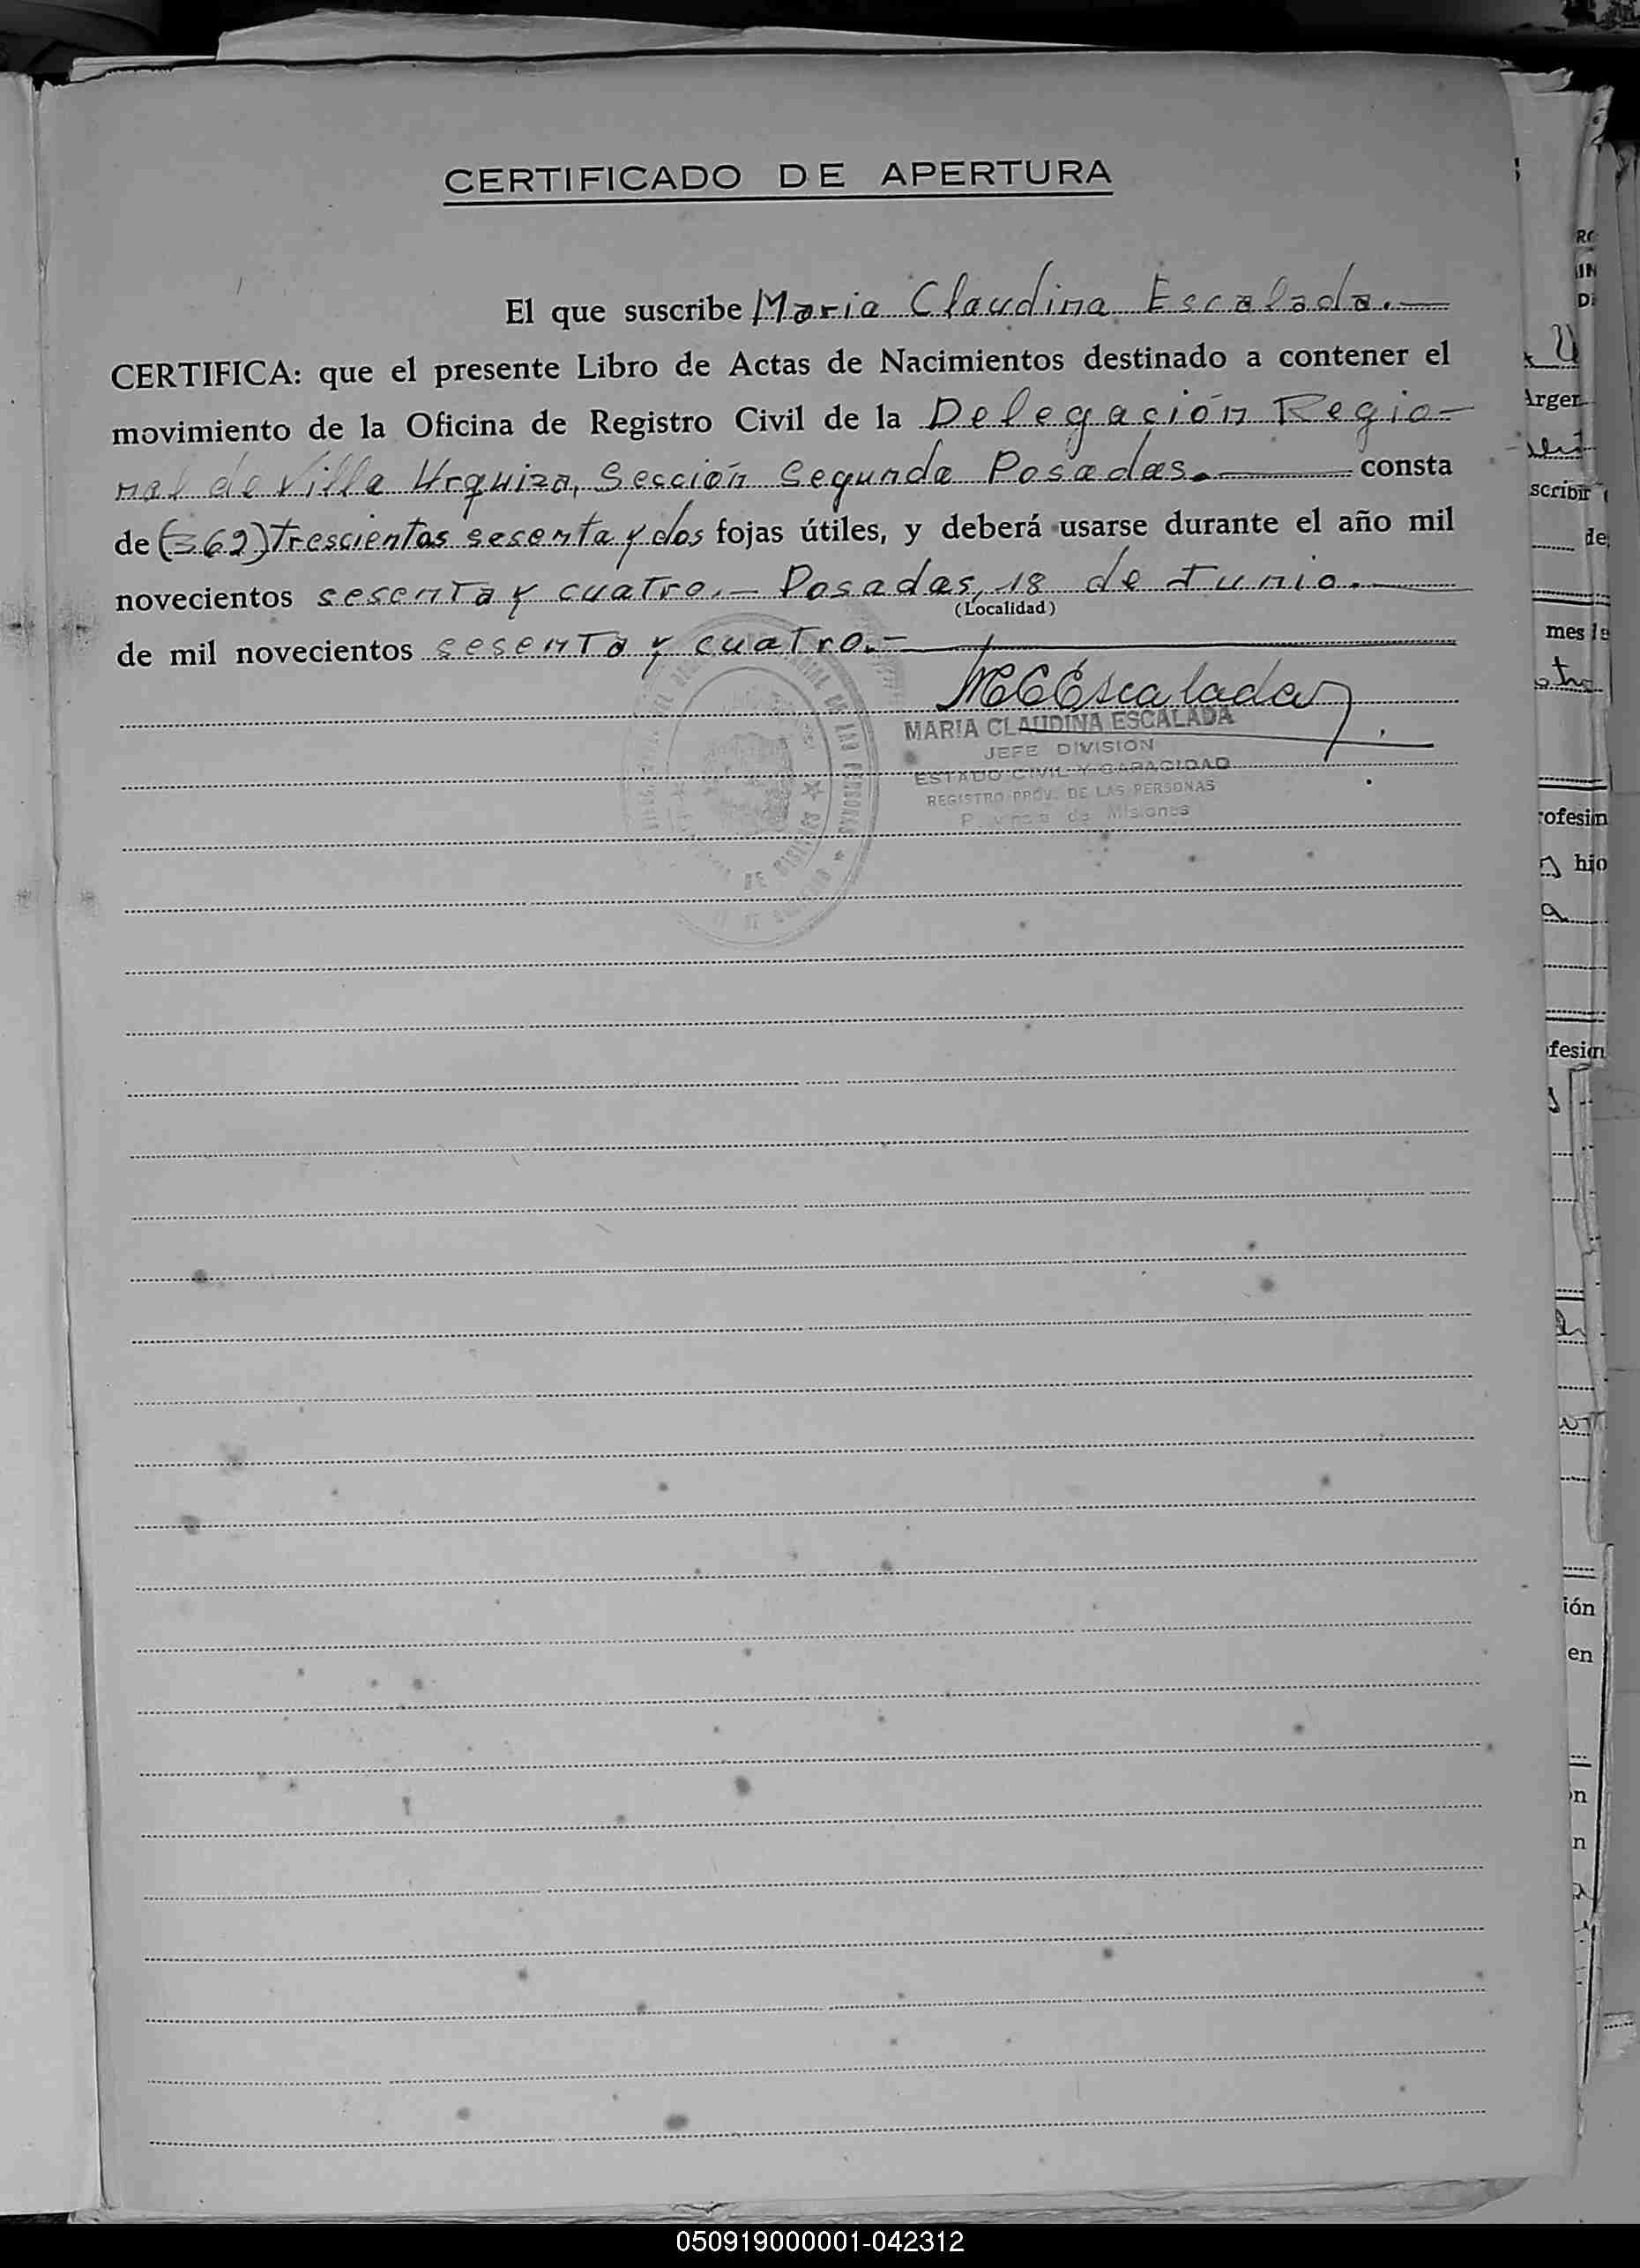 CERTIFICADO DE APERTURA
El que suscribe Maria Claudina Escalada.—
CERTIFICA: que el presente Libro de Actas de Nacimientos destinado a contener el
movimiento de la Oficina de Registro Civil de la Delegación Regio-
nal de Villa Urquiza, Sección Segunda Posadas.— consta
de (362) Trescientas sesenta y dos fojas útiles, y deberá usarse durante el año mil
novecientos sesenta y cuatro.— Posadas, 18 de Junio.—
(Localidad)
de mil novecientos sesenta y cuatro.—
MCEscalada
MARIA CLAUDINA ESCALADA
JEFE DIVISION
ESTADO CIVIL Y CAPACIDAD
REGISTRO PROV. DE LAS PERSONAS
Provincia de Misiones
050919000001-042312